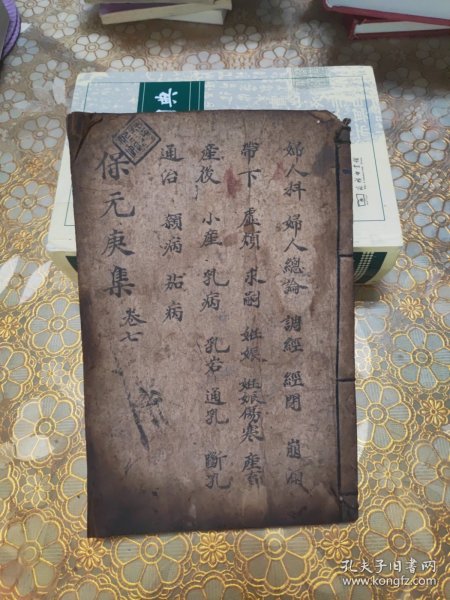 婦人科 婦人總論 調經 經閉 崩漏
帶下 虛煩 求嗣 妊娠 妊娠傷寒 產前
產後 小產 乳病 乳岩 通乳 斷乳
通治 前病 茄病
保元庚集 卷七
典
孔夫子旧书网
www.kongfz.com